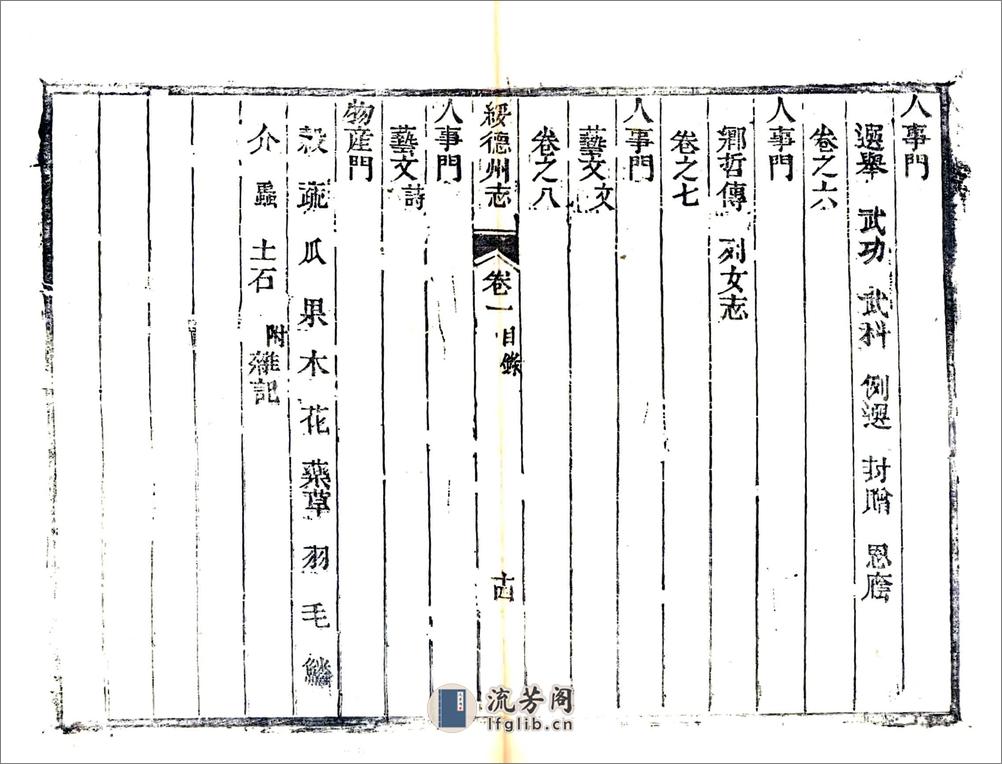 人事門
選舉 武功 武科 例選 封贈 恩廕
卷之六
人事門
鄉哲傳 列女志
卷之七
人事門
藝文文
卷之八
綏德州志 卷一 目錄 十四
人事門
藝文詩
物産門
穀 蔬 瓜 果 木 花 藥草 羽 毛 鱗
介 蟲 土石 附雜記
流芳阁
lfglib.cn